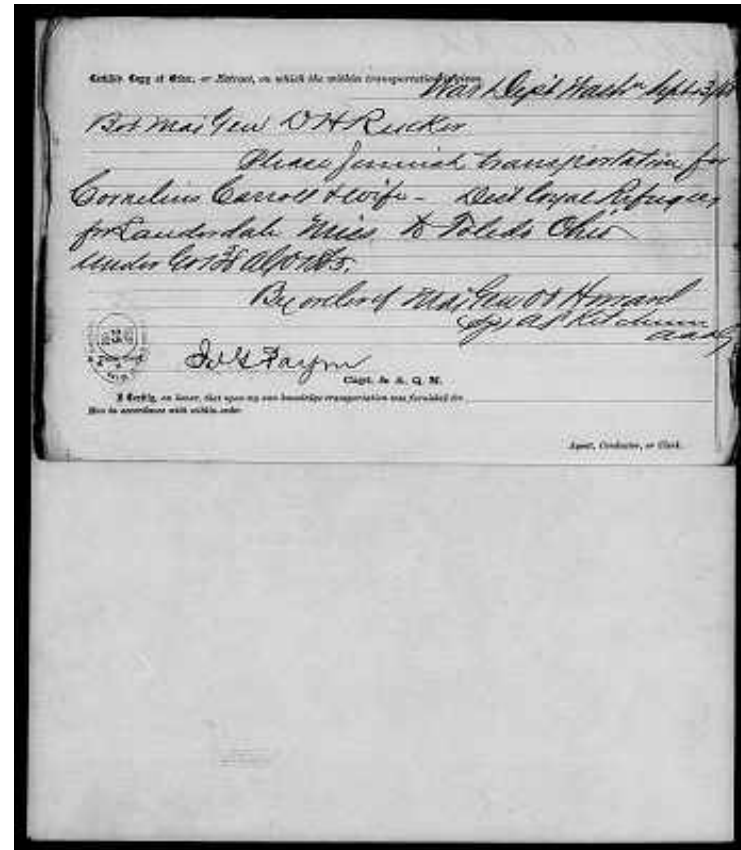 Certify Copy of Order, or Extract, on which the within transportation is given
War Dept Washn Sept 3/
Bvt Maj Gen D H Rucker
Please furnish transportation for
Cornelius Carroll & wife - Dest Loyal Refugees
from Lauderdale Miss to Toledo Ohio
Under
By order of Maj Gen O O Howard
Sg A P Ketchum
aag
Capt. & A. Q. M.
I Certify, on honor, that upon my own knowledge transportation was furnished for
Men in accordance with within order
Agent, Conductor, or Clerk.